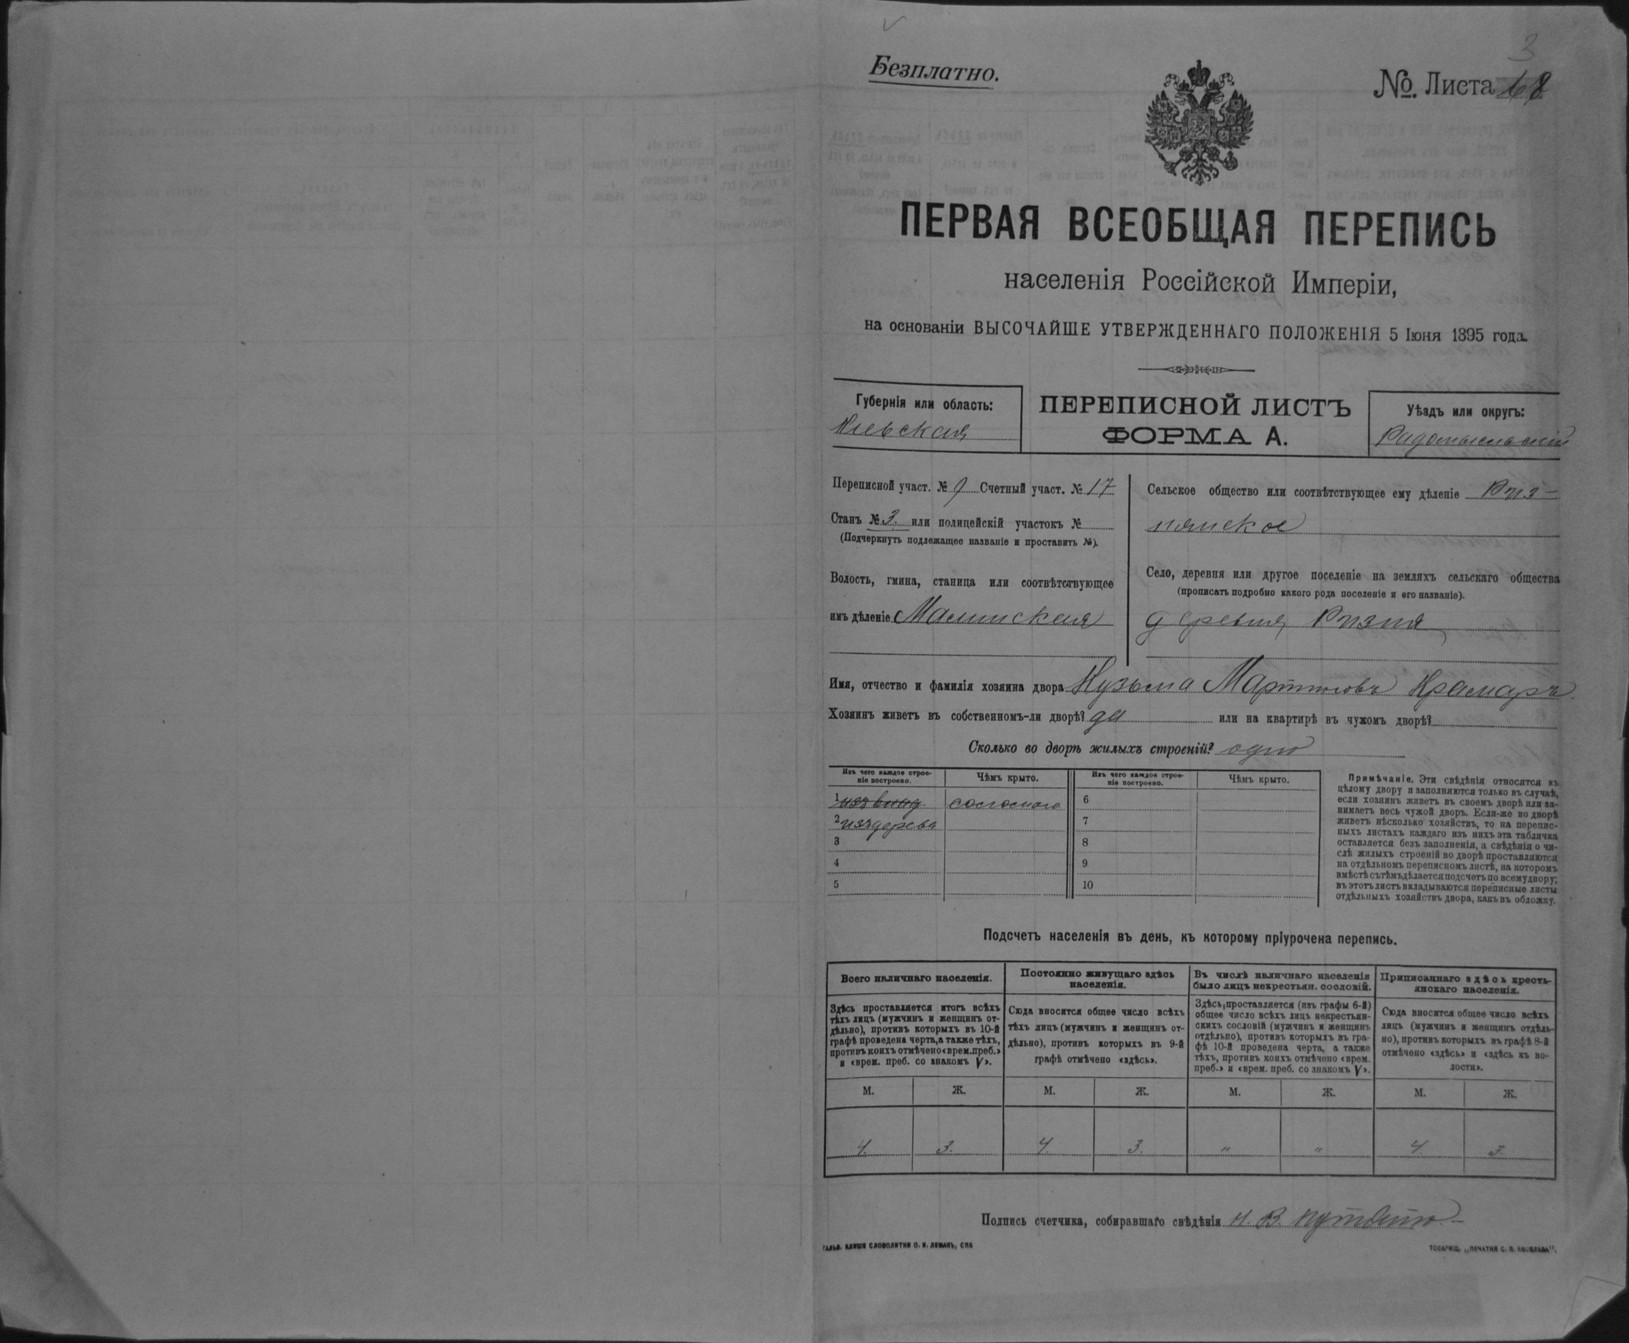 Безплатно.
3
№. Листа
ПЕРВАЯ ВСЕОБЩАЯ ПЕРЕПИСЬ
населенія Россійской Имперіи,
на основаніи ВЫСОЧАЙШЕ УТВЕРЖДЕННАГО ПОЛОЖЕНІЯ 5 Іюня 1895 года.
Губернія или область:
Кіевская
ПЕРЕПИСНОЙ ЛИСТЪ
ФОРМА А.
Уѣздъ или округъ:
Радомысльскій
Переписной участ. № 9 Счетный участ. № 17
Станъ № 3. или полицейскій участокъ №
(Подчеркнуть подлежащее названіе и проставить №).
Волость, гмина, станица или соотвѣтствующее
имъ дѣленіе Малинская
Сельское общество или соотвѣтствующее ему дѣленіе Риз-
нянское
Село, деревня или другое поселеніе на земляхъ сельскаго общества
(прописать подробно какого рода поселеніе и его названіе).
деревня Ризня
Имя, отчество и фамилія хозяина двора Кузьма Мартиновъ Крамаръ
Хозяинъ живетъ въ собственномъ-ли дворѣ? да или на квартирѣ въ чужомъ дворѣ?
Сколько во дворѣ жилыхъ строеній? одно
Изъ чего каждое строе-
ніе построено.
Чѣмъ крыто.
Изъ чего каждое строе-
ніе построено.
Чѣмъ крыто.
1 соломою 6
2 изъ дерева 7
3 8
4 9
5 10
Примѣчаніе. Эти свѣдѣнія относятся къ
цѣлому двору и заполняются только въ случаѣ,
если хозяинъ живетъ въ своемъ дворѣ или за-
нимаетъ весь чужой дворъ. Если-же во дворѣ
живетъ нѣсколько хозяйствъ, то на перепис-
ныхъ листахъ каждаго изъ нихъ эта табличка
оставляется безъ заполненія, а свѣдѣнія о чи-
слѣ жилыхъ строеній во дворѣ проставляются
на отдѣльномъ переписномъ листѣ, на которомъ
вмѣстѣ съ тѣмъ дѣлается подсчетъ по всему двору;
въ этотъ листъ вкладываются переписные листы
отдѣльныхъ хозяйствъ двора, какъ въ обложку.
Подсчетъ населенія въ день, къ которому пріурочена перепись.
Всего наличнаго населенія.
Здѣсь проставляется итогъ всѣхъ
тѣхъ лицъ (мужчинъ и женщинъ от-
дѣльно), противъ которыхъ въ 10-й
графѣ проведена черта, а также тѣхъ,
противъ коихъ отмѣчено «врем. преб.»
и «врем. преб. со знакомъ V».
Постоянно живущаго здѣсь
населенія.
Сюда вносится общее число всѣхъ
тѣхъ лицъ (мужчинъ и женщинъ от-
дѣльно), противъ которыхъ въ 9-й
графѣ отмѣчено «здѣсь».
Въ числѣ наличнаго населенія
было лицъ некрестьян. сословій.
Здѣсь проставляется (изъ графы 6-й)
общее число всѣхъ лицъ некрестьян-
скихъ сословій (мужчинъ и женщинъ
отдѣльно), противъ которыхъ въ гра-
фѣ 10-й проведена черта, а также
тѣхъ, противъ коихъ отмѣчено «врем.
преб.» и «врем. преб. со знакомъ V».
Приписаннаго здѣсь кресть-
янскаго населенія.
Сюда вносится общее число всѣхъ
лицъ (мужчинъ и женщинъ отдѣль-
но), противъ которыхъ въ графѣ 8-й
отмѣчено «здѣсь» и «здѣсь къ во-
лости».
М. Ж. М. Ж. М. Ж. М. Ж.
4. 3. 4. 3. " " 4. 3.
Подпись счетчика, собиравшаго свѣдѣнія
ГАЛЬВ. КЛИШЕ СЛОВОЛИТНИ О. И. ЛЕМАНЪ, СПБ